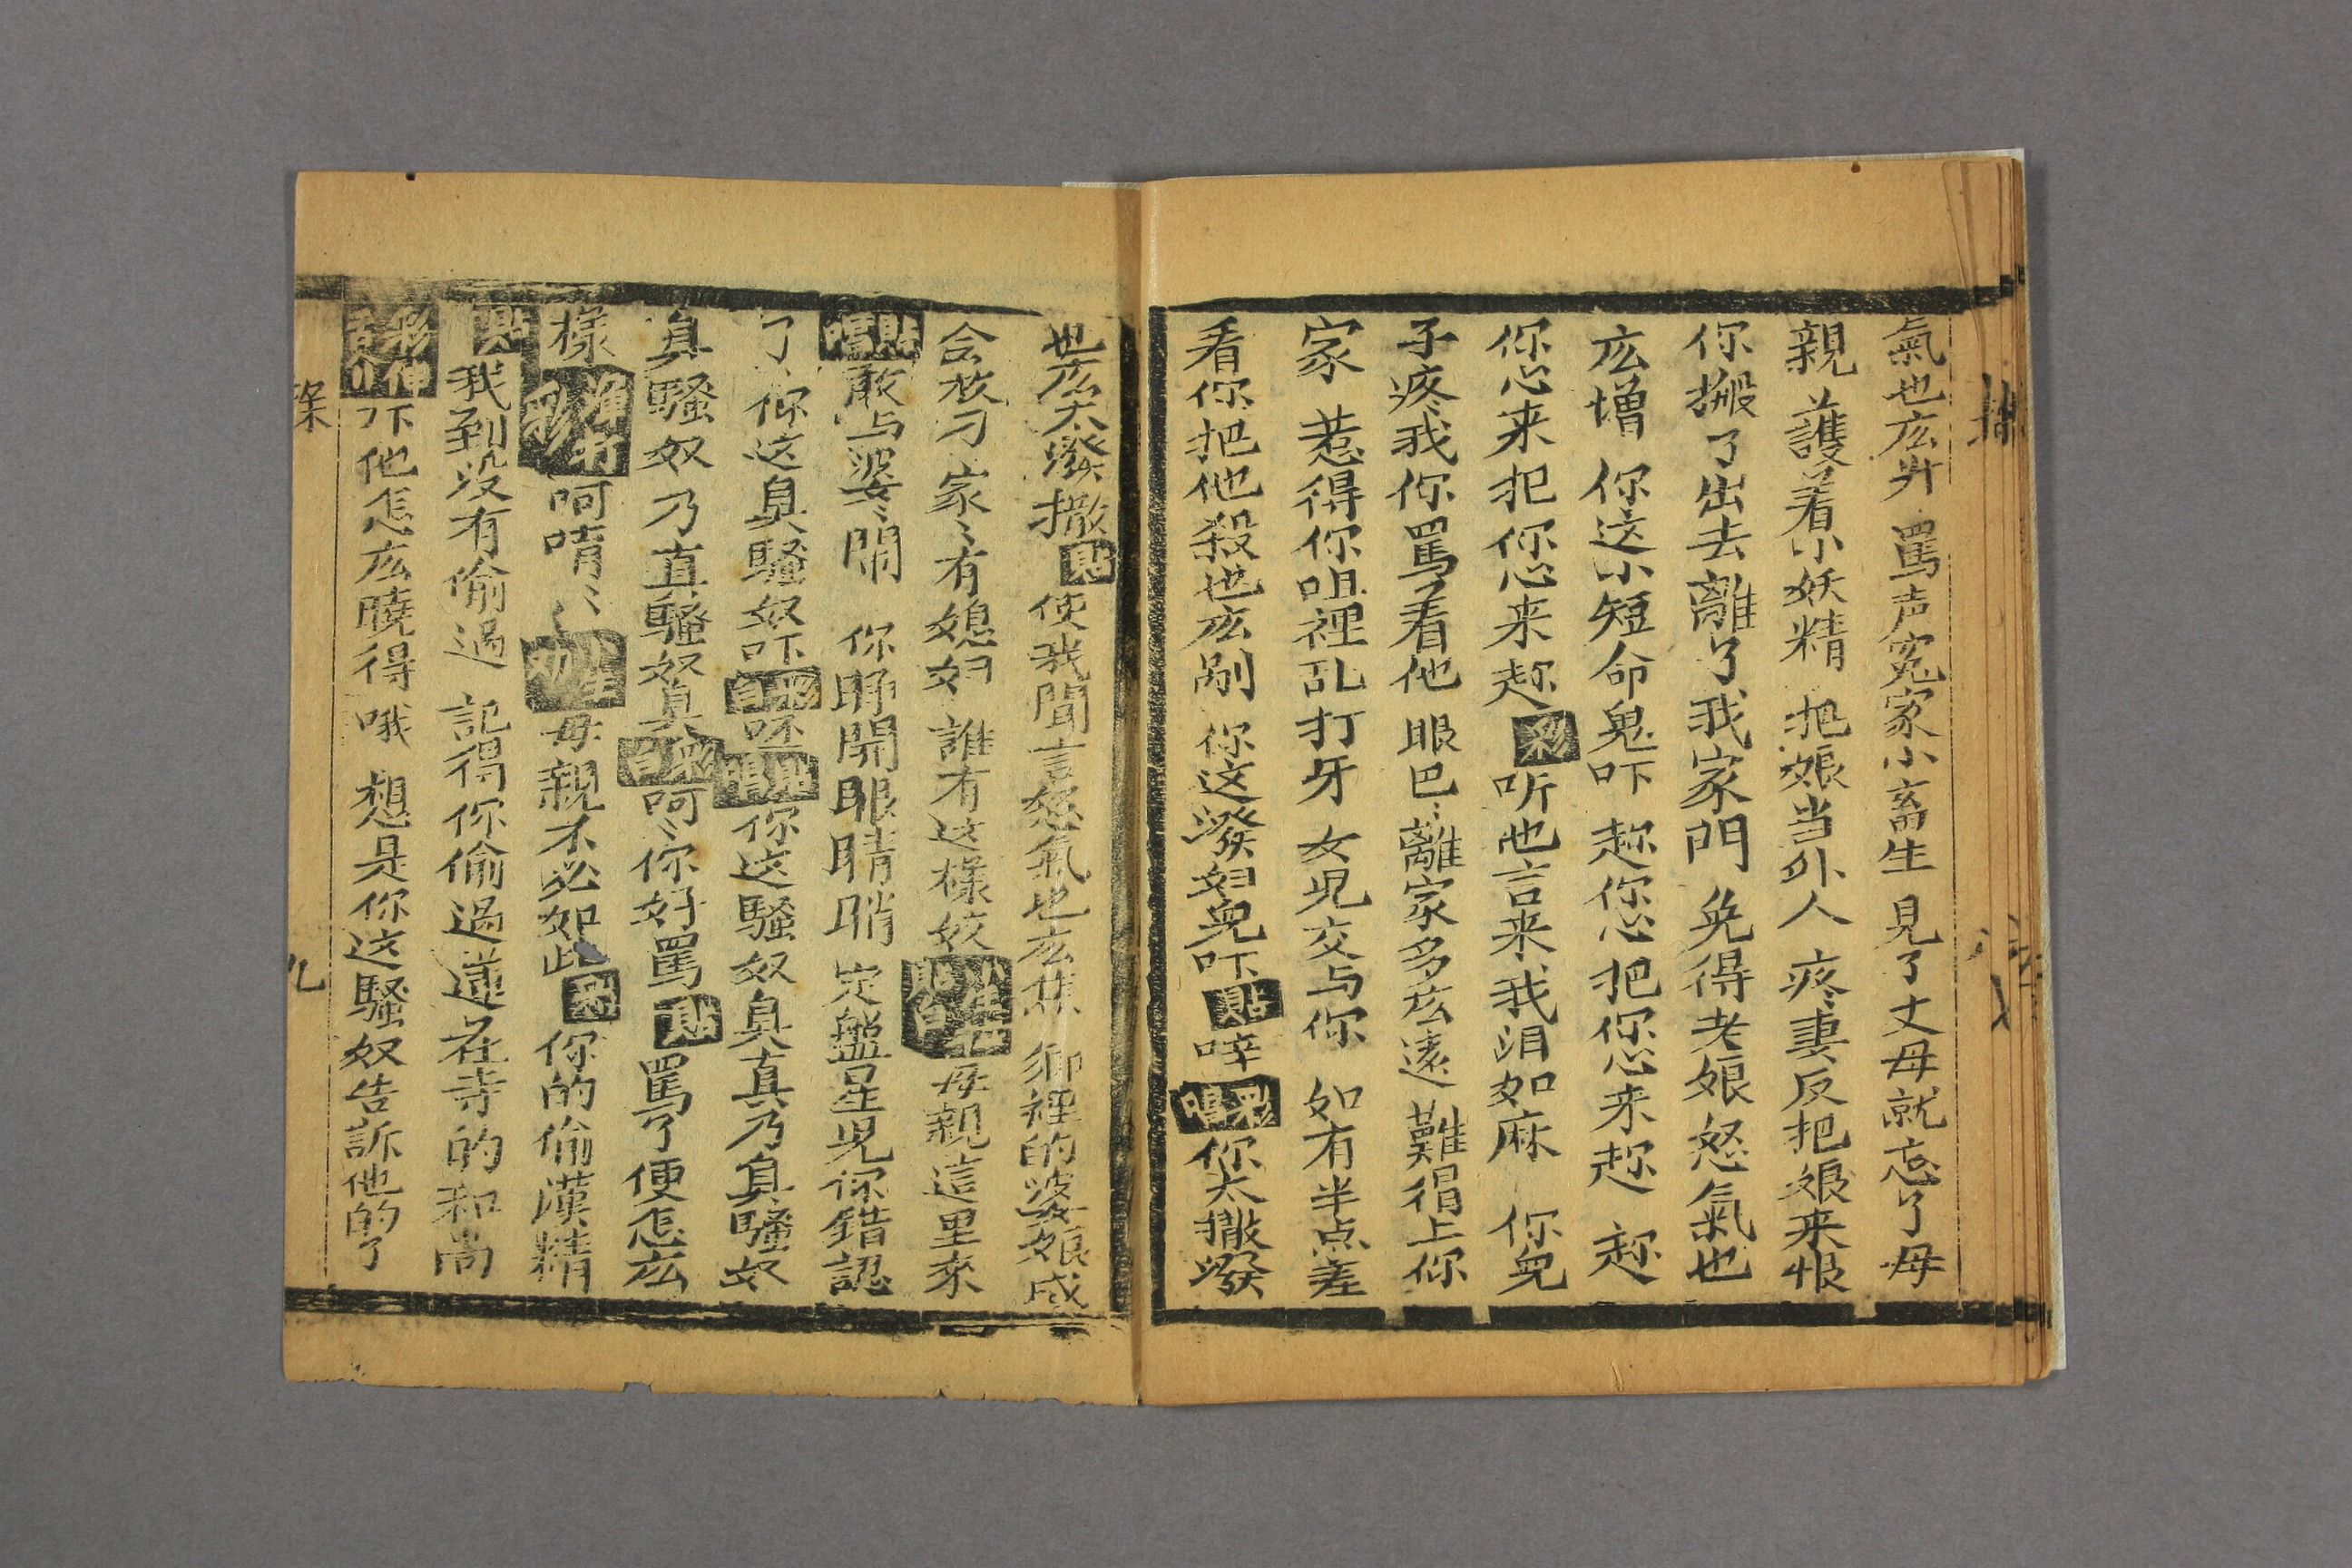 氣也庅升 罵声冤家小畜生 見了丈母就忘了母
親 護着小妖精 把娘当外人 疼妻反把娘来恨
你搬了出去離了我家門 免得老娘怒氣也
庅增 你这小短命鬼吓 趂您把您来趂 趂
您来把您来趂彩听他言来我泪如麻 你兒
子疼我你罵看他 眼巴〻離家多庅遠 難得上你
家 惹得你咀裡乱打牙 女児交与你 如有半点差
看你把他殺也庅剮 你这潑妇兒吓貼啐彩唱你太撒潑
也庅太潑撒貼使我聞言怒氣也庅焦 鄉裡的婆娘咸
合放刁 家〻有媳妇 誰有这樣姣生貼白母親這里來
貼唱敢与婆〻閙 你睜開眼睛睄 定盤星児你錯認
了 你这臭騷奴吓彩白呸貼唱你这騷奴真真乃真騷奴
真騷奴乃真騷奴真彩白呵〻你好罵貼罵了便怎庅
樣彩呵唷〻〻生母親不必如此彩你的偷漢精
貼我到没有偷過 記得你偷過蓮花寺的和尚
吓他怎庅曉得 哦 想是你这騷奴告訴他的了
九